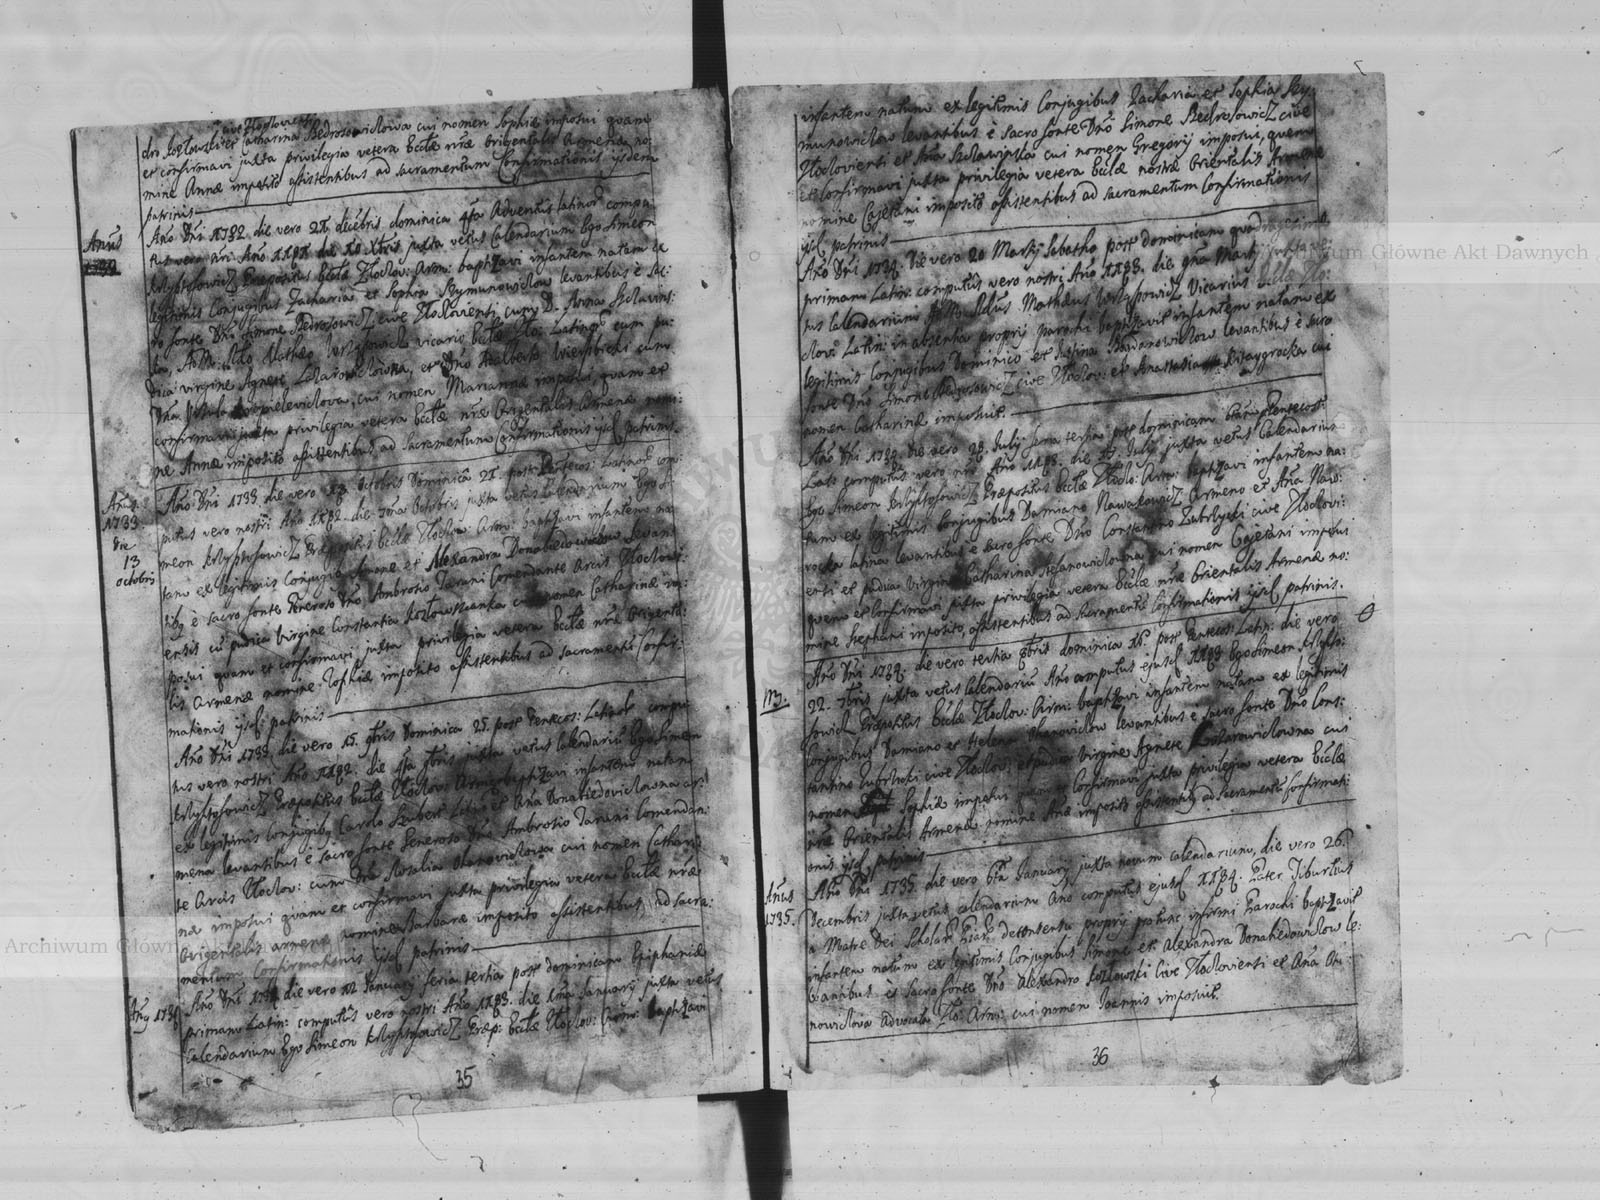 cive Złoclovien:
dro Kozłowski et Catharina Bedrosowiclowa cui nomen Sophiæ imposui quam
et confirmavi juxta privilegia vetera Ecclæ nræ Origentalis Armenæ no:
mine Annæ imposito assistentibus ad sacramentum Confirmationis ijsdem
patrinis
Anus
Año Dni 1732 die vero 21 decēbris dominica 4ta Adventus latinor compu
tus vero nri Año 1181 die 10 Xbris juxta vetus Calendarium Ego Simeon
Krzysztofowicz Præpositus Ecclæ Złoclov: Arm: baptizavi infantem natam ex
legitimis Conjugibus Zacharia et Sophia Szymunowiclow levantibus è Sac:
ro fonte Dño Simone Bedrosowicz cive Złoclovienti cum D. Anna
Mathæo vicario Ecclæ Zło: Latinor cum pu
dica virgine Agnete Lazarowiclowna, et Dño Adalberto Wierzbicki cum
Dna cui nomen Mariannæ imposui, quam et
confirmavi juxta privilegia vetera Ecclæ nræ Origentalis Armenæ nomi:
ne Annæ imposito assistentibus ad sacramentum Confirmationis ijsd patrinis.
Anus
1733
die
13
octobris
Año Dni 1733 die vero 13 octobris Dominica 21 post Pentecos: Latinor com
putus vero nostri Año 1182 die 2da octobris juxta vetus Calendarium Ego Si
meon Krzysztofowicz Præpositus Ecclæ Złoclov: Arm: baptizavi infantem na
tam ex legitimis Conjugib Simone et Alexandra Donabiedowiclow levan
tibq è sacro fonte Generoso Dño Ambrosio Tarani Comendante Arcis Złoclovi:
ensis cū pudica Virgine Constantia Kozłowszanka cui nomen Catharinæ im:
posui quam et confirmavi juxta privilegia vetera Ecclæ nræ Origenta:
lis Armenæ nomine Sophiæ imposito assistentibus ad sacramentū Confir:
mationis ijsd: patrinis
Año Dni 1733 die vero 15. 9bris Dominica 25. post Pentecos: Latinor compu
tus vero nostri Año 1182. die 4ta 9bris juxta vetus Calendariū Ego Simeon
Krzysztofowicz Præpositus Ecclæ Złoclov: Armen: baptizavi infantem natam
ex legitimis Conjugibq Carolo Szubert et Aña Donabiedowiclowna ar:
mena levantibus è sacro fonte Generoso Dño Ambrosio Tarani Comendan:
te Arcis Złoclov: cum Dna Rosalia Ohanowiclowa cui nomen Cathari:
na imposui quam et confirmavi juxta privilegia vetera Ecclæ nræ
Origentalis armenæ nomine Barbaræ imposito assistentibus ad sacra:
mentum Confirmationis ijsd patrinis
Anq 1734
Año Dni 1734 die vero 12 January feria tertia post dominicam Epiphaniæ
primam Latin: computus vero nostri Año 1183. die 1ma January juxta vetus
Calendarium Ego Simeon Krzysztofowicz Præp: Ecclæ Złoclov: Arm: baptizavi
35
infantem natum ex legitimis Conjugibus Zacharia et Sophia Szy:
munowiclow levantibus è sacro fonte Dño Simone Bedrosowicz cive
Złoclovienti et Aña cui nomen Gregorij imposui, quem
et Confirmavi juxta privilegia vetera Ecclæ nostræ Orientalis Armenæ
nomine Cajetani imposito assistentibus ad sacramentum Confirmationis
ijsd patrinis
Año Dni 1734 die vero 20 Martij Sabatho post dominicam quadragesimæ
primam Latin: computus vero nostri Año 1183. die 9na Martij juxta ve:
tus Calendarium Mathæus Krzysztofowicz Vicarius Ecclæ Zło:
clov: Latin: in absentia proprij parochi baptizavit infantem natam ex
legitimis Conjugibus Dominico et Justina Bogdanowiclow levantibus è sacro
fonte Dño Simone Bedrosowicz cive Złoclov: et Anastasia cui
nomen Catharinæ imposuit.
Año Dni 1734 die vero 28 July feria tertia post dominicam Pentecost:
Lats computus vero nri Año 1183. die 17 July juxta vetus Calendarium
Ego Simeon Krzysztofowicz Præpositus Ecclæ Złoclo: Arm: baptizavi infantem na:
tum ex legitimis Conjugibus Damiano Nowakowicz Armeno et Aña Naw:
rocka latina levantibus è sacro fonte Dño Constantino Zubrzycki cive Złoclovi:
enti et pudica Virgine Catharina Stefanowiclowna cui nomen Cajetani imposui
quem et Confirmavi juxta privilegia vetera Ecclæ nræ Orientalis Armenæ no:
mine Stephani imposito, assistentibus ad sacramentū Confirmationis ijsd patrinis.
M3.
Año Dni 1734. die vero tertia 8bris dominica 16. post Pentecos: Latin: die vero
22. 7bris juxta vetus Calendariū Año computus ejusd 1183 Ego Simeon Krzyszto:
fowicz Præpositus Ecclæ Złoclov: Arm: baptizavi infantem natam ex legitimis
Conjugibus Damiano et Helena Ohanowiclow levantibus è sacro fonte Dño Cons:
tantino Zubrzicki cive Złoclov: et pudica Virgine Agnete Lazarowiclowna cui
nomen Sophiæ imposui quam et Confirmavi juxta privilegia vetera Ecclæ
nræ Orientalis Armenæ nomine Anæ imposito assistentibq ad sacramentū Confirmati:
onis ijsd patrinis
Anus
1735.
Año Dni 1735. die vero 6ta January juxta novum calendarium, die vero 26.
Decembris juxta vetus calendarium Año computus ejusd 1184. Pater Tiburtius
a Matre Dei Scholar Piar detentente proprij protunc infirmi Parochi baptizavit
infantem natum ex legitimis Conjugibus Simone et Alexandra Donabiedowiclow le:
vantibus è sacro fonte Dño Alexandro Kozlowski Cive Złoclovienti et Aña Ohi:
nowiclowa Advocata Zło: Arm: cui nomen Joannis imposuit.
36
Archiwum Główne Akt Dawnych
Archiwum Główne Akt Dawnych